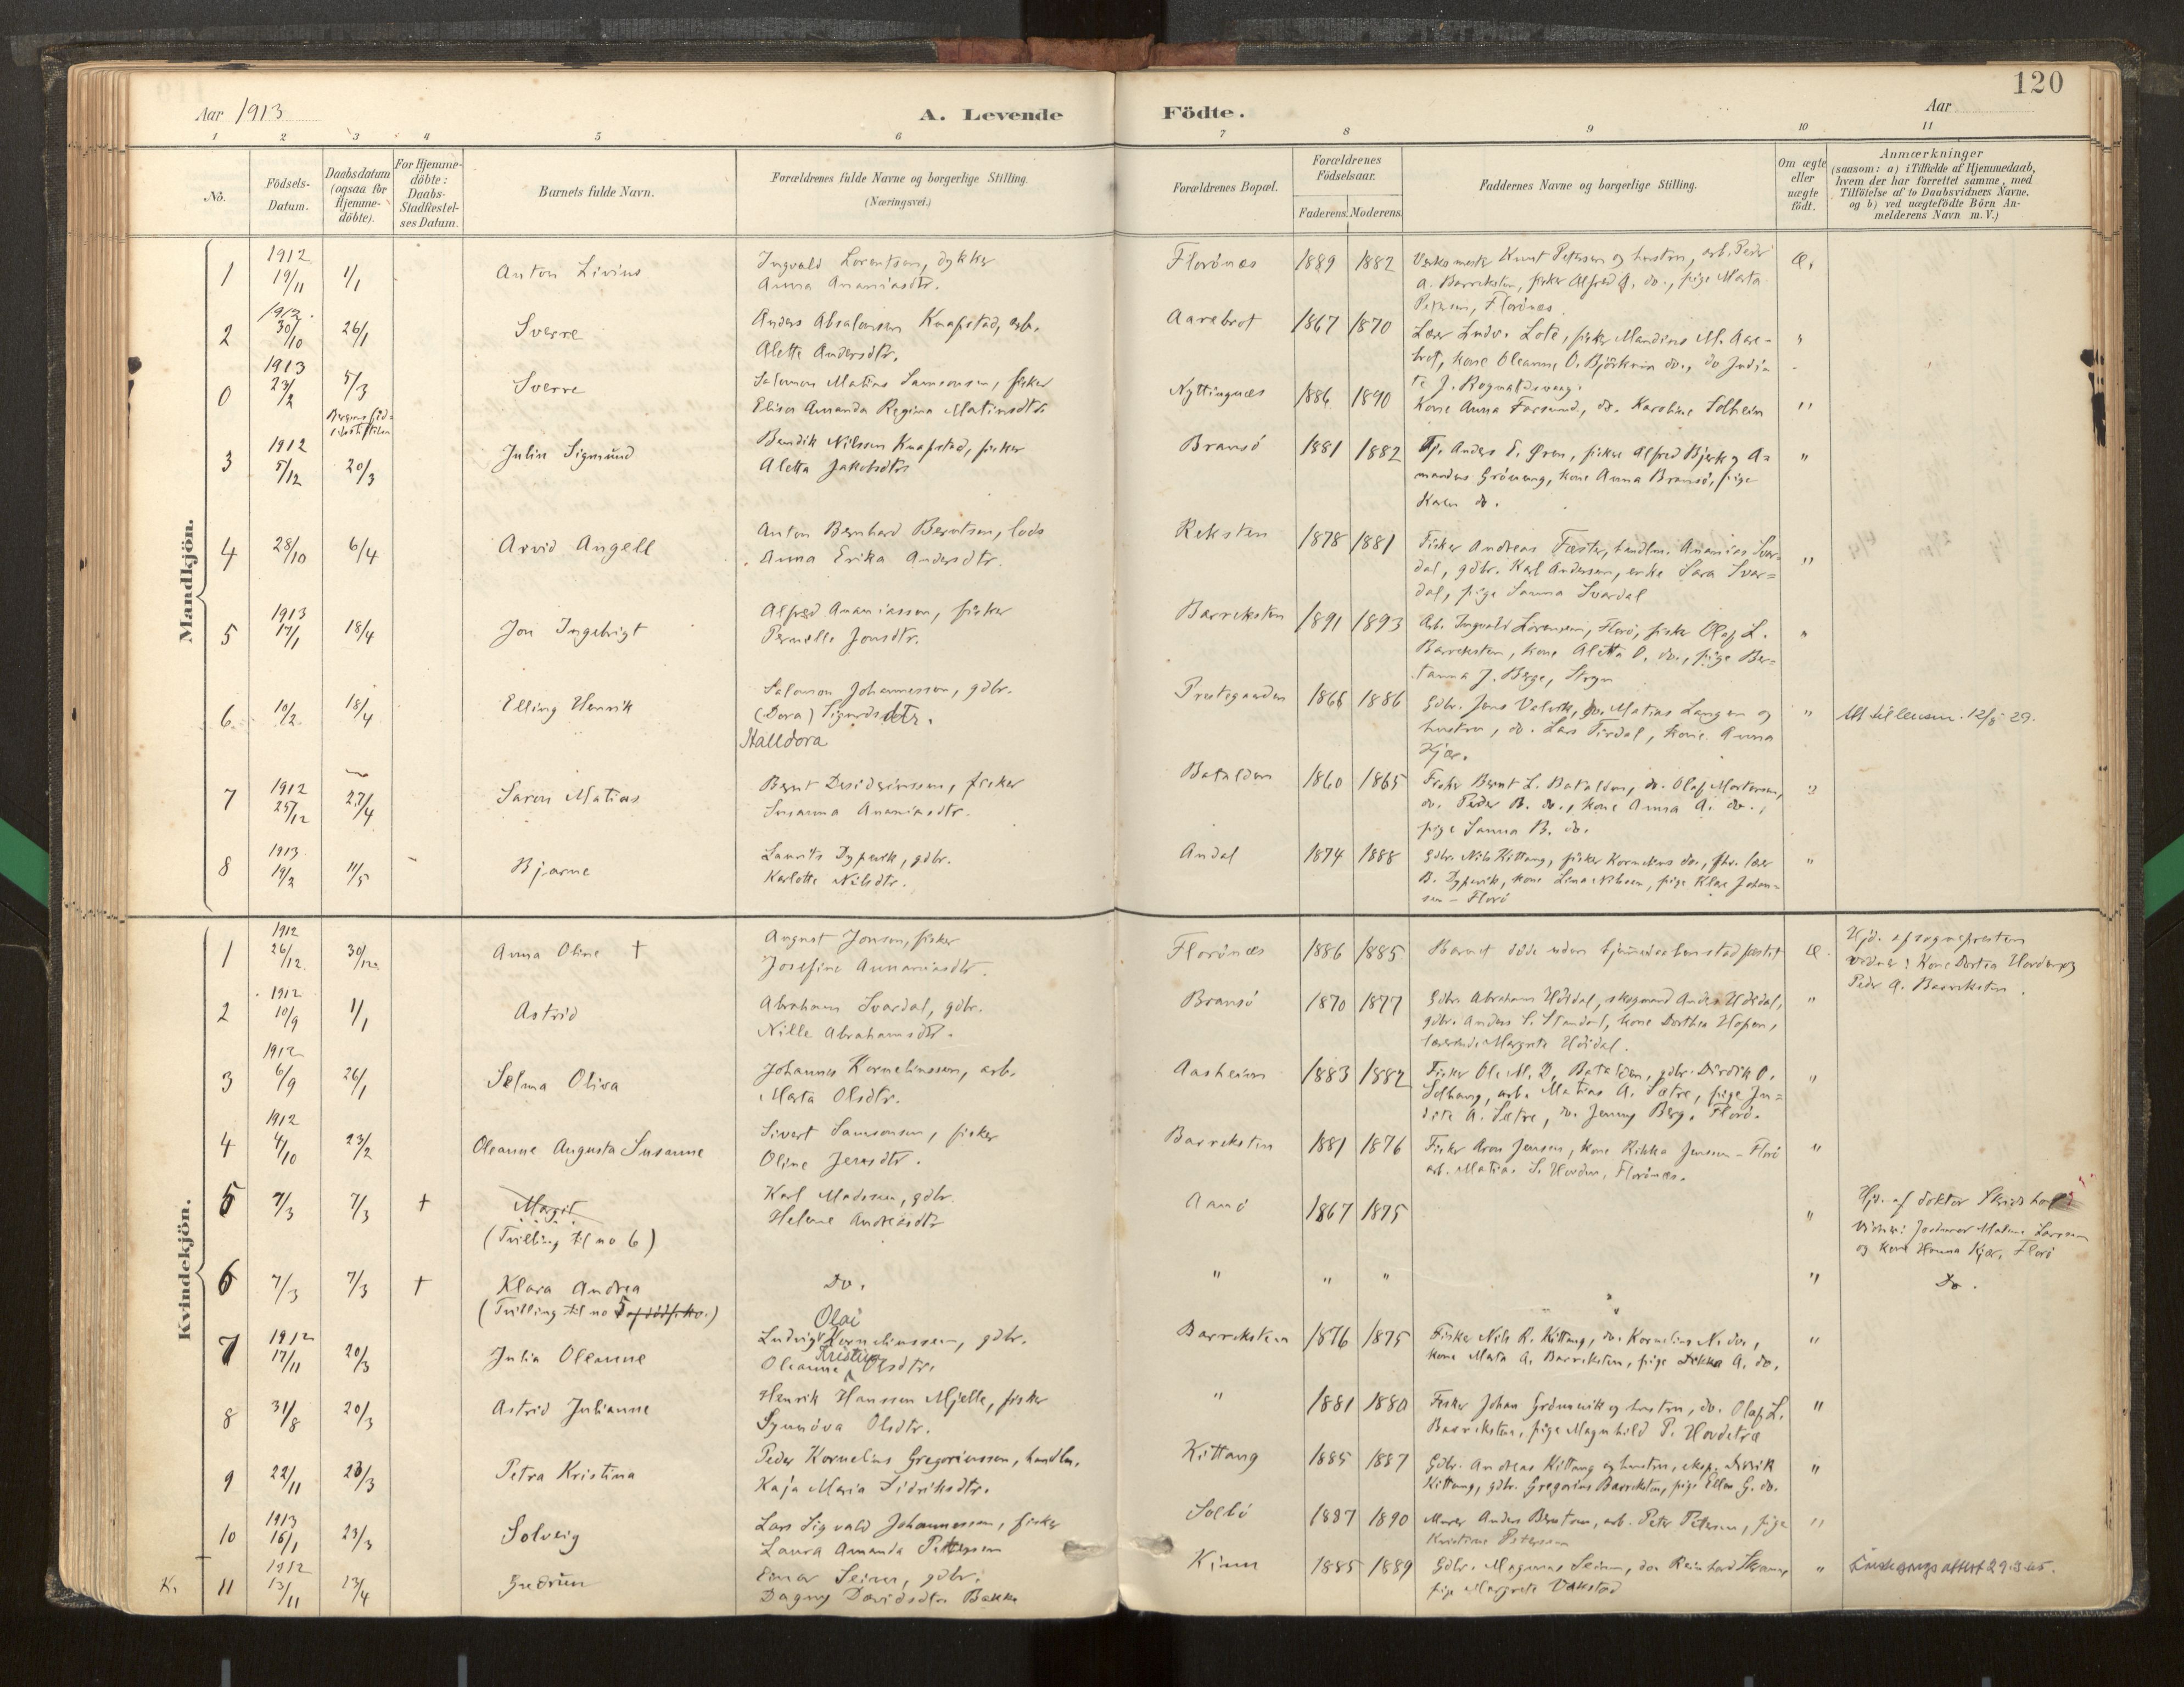 120
Aar 1913
A. Levende Födte.
Aar
1 2 3 4 5 6 7 8 9 10 11
No.
Födsels-
Datum.
Daabsdatum
(ogsaa for
Hjemme-
döbte).
For Hjemme-
döbte:
Daabs-
Stadfæstel-
ses Datum.
Barnets fulde Navn.
Forældrenes fulde Navne og borgerlige Stilling.
(Næringsvei.)
Forældrenes Bopæl.
Forældrenes
Födselsaar.
Faderens. Moderens.
Faddernes Navne og borgerlige Stilling.
Om ægte
eller
uægte
födt.
Anmærkninger
(saasom: a) i Tilfælde af Hjemmedaab,
hvem der har forrettet samme, med
Tilföielse af to Daabsvidners Navne.
og b) ved uægtefödte Börn An-
melderens Navn m. V.)
Mandkjön.
1 1912 19/11 1/1 Anton Livius
Ingvald Lorentsen, dykker
Anna Ananiasdtr.
Florönæs 1889 1882
Verksmester Knut Petersen og hustru, arb. Peder
A. Barreksten, fisker Alfred A. do., pige Marta
Petersen, Florönæs
Æ.
2 1912. 30/10 26/1 Sverre
Anders Absalonsen Knapstad, arb.
Alette Andersdtr.
Aarebrot 1867 1870
Lærer Ludv. Lote, fisker Mandius M. Aare-
brot, kone Oleanne O. do., do
te J.
"
0 1913 23/2 5/3 Sverre
Salomon Matias Samsonsen, fisker
Elisa Amanda Regina Matiasdtr.
Nyttingnæs 1886 1890
Kone Anna Farsund, do. Karoline Solheim
"
3 1912 5/12 20/3 Julin Sigmund
Bendik Nilssen Knapstad, fisker
Aletta Jakobsdtr
Bransö 1881 1882
Anders E. Øren, fisker Alfred Bjerk og A-
mandus Grönevag, kone Anna Bransö, pige
Karen do.
"
4 28/10 6/4 Arvid Angell
Anton Bernhard Berntsen, lods
Anna Erika Andersdtr.
Reksten 1878 1881
Fisker Andreas Fæster, handlm. Ananias Svar-
dal, gdbr. Karl Andersen, enke Sara Svar=
dal, pige Sanna Svardal
"
5 1913 17/1 18/4 Jon Ingebrigt
Alfred Ananiassen, fisker
Pernille Jonsdtr.
Barreksten 1891 1893
Arb. Ingvald Lorensen, Florö, fisker Olaf L.
Barreksten, kone Aletta O. do., pige Ber-
tanna J. Berge, Stryn
"
6 10/2 18/4 Elling Henrik
Salomon Johannessen, gdbr.
(Dora) Sigurdsdtr.
Halldora
Prestegaarden 1868 1886
Gdbr. Jens Valvik, do. Matias Langen og
hustru, do. Lars Tirdal, kone Anna
Kjær.
"
7 1912 25/12 27/4 Saron Matias
Bernt Desideriussen, fisker
Susanna Ananiasdtr.
Batalden 1860 1865
Fisker Bernt L. Batalden, do. Olaf Mortensen,
do. Peder B. do., kone Anna A. do.,
pige Sanna B. do.
"
8 1913 19/2 11/5 Bjarne
Laurits Dypevik, gdbr.
Karlotte Nilsdtr.
Andal 1874 1888
Gdbr. Nils Kittang, fisker Kornelius do., fhv. lærer
B. Dypevik, kone Lina Nilssen, pige Klara Johan-
sen - Florö
"
Kvindekjön.
1 1912 26/12. 30/12. Anna Oline †
August Jonsen, fisker
Josefine Annaniasdtr.
Florönæs 1886 1885
Barnet döde uden hjemmedaaben stadfæstet
Æ.
Hjd. af sognepresten
vidner: Kone Dortea Horden og
Peder A. Barreksten.
2 1912 10/9 1/1 Astrid
Abraham Svardal, gdbr.
Nille Abrahamsdtr.
Bransö 1870 1877
Gdbr. Abraham Hödal, Anders Hödal,
gdbr. Anders S. Standal, kone Dorthea Hopen,
Margreta Hödal.
"
3 1912 6/9 26/1 Selma Oliva
Johannes Korneliussen, arb.
Marta Olsdtr.
Aasheim 1883 1882
Fisker Ole M. D. Batalden, gdbr. Didrik O.
Solhaug, arb. Matias A. Sætre, pige Ju=
dite A. Sætre, do. Jenny Berg, Florö.
"
4 1912 4/10 23/2 Oleanne Augusta Susanne
Sivert Samsonsen, fisker
Oline Jensdtr.
Barreksten 1881 1876
Fisker Aron Jensen, kone Rikka Jensen - Florö
arb. Matias S. Horden, Florönæs.
"
5 7/3 7/3 † Margit
(Tvilling til no 6)
Karl Madssen, gdbr.
Helene Andreasdtr
Aanö 1867 1875
"
Hjd. af doktor
vidner: Jordmor Malene Larssen
og kone Hanna Kjær, Florö
6 7/3 7/3 † Klara Andrea
(Tvilling til no 5)
Do.
" " " " Do.
7 1912 17/11 20/3 Julia Oleanne
Olai
Ludvig Korneliussen, gdbr.
Kristine
Oleanne Olsdtr.
Barreksten 1876 1875
Fisker Nils R. Kittang, do. Kornelius N. do.,
kone Marta A. Barreksten, pige Rikka A. do.
"
8 31/8 20/3 Astrid Julianne
Henrik Hanssen Mjelle, fisker
Synnöva Olsdtr.
" 1881 1880
Fisker Johan Grönevik og hustru, do. Olaf L.
Barreksten, pige Magnhild P. Hovdetræ
"
9 22/11 23/3 Petra Kristina
Peder Kornelius Gregoriussen, handlm.
Kaja Maria Didriksdtr.
Kittang 1885 1887
Gdbr. Andreas Kittang og hustru, eksp. Didrik
Kittang, gdbr. Gregorius Barreksten, pige Ellen G. do.
"
10 1913 16/1 23/3 Solveig
Lars Sigvald Johannessen, fisker
Laura Amanda Pettersen
Solbö 1887 1890
Murer Anders Berntsen, arb. Peter Petersen, pige
Kristine Petersen
"
K. 11 1912 13/11 13/4 Gudrun
Einar Seinen, gdbr.
Dagny Davidsdtr Bakke
Kinn 1885 1889
Gdbr. Magnus Seinen, do. Reinhard
pige Margrete Vakstad
"